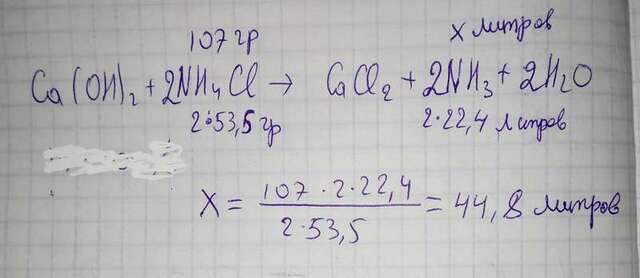 107 гр X литров
Ca(OH)₂ + 2NH₄Cl → CaCl₂ + 2NH₃ + 2H₂O
2·53,5 гр 2·22,4 литров
X = 107 · 2 · 22,4 / 2·53,5 = 44,8 литров